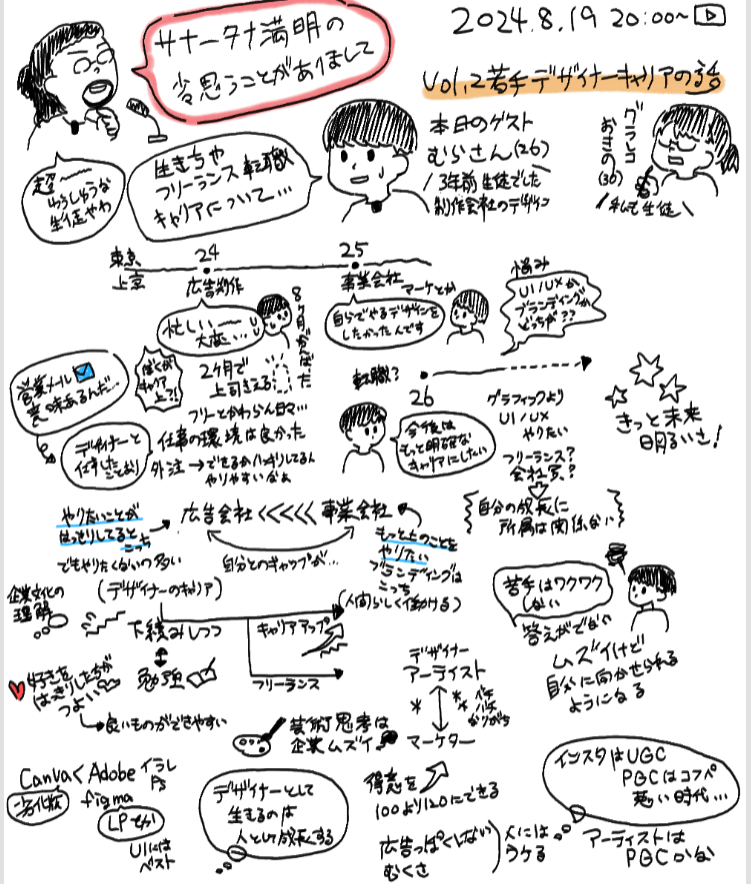 サナータナ満明の
劣思うことがありまして
2024.8.19 20:00~
Vol.2若手デザイナーキャリアの話
本日のゲスト
むらさん(26)
3年前生徒でした
制作会社のデザイナー
グラレコ
おきの
(30)
私も生徒
超〜
ゆうしゅうな
生徒やわ
生きちや
フリーランス 転職
キャリアについて…
東京
上京
24
広告制作
25
事業会社
マーケとか
悩み
UI/UXか
ブランディングか
どっちが??
忙しい〜
大変…
8ヶ月がんばった
自分でやるデザインを
したかったんです
営業メール
意味あるんだ…
ぼくが
キャリア
上?!
2ヶ月で
上司きえる
フリーとかわらん日々…
デザイナーと
仕事したことより
仕事の環境は良かった
外注→できるかハッキリしてるん
やりやすいなぁ
転職?
26
今後は
もっと明確な
キャリアにしたい
グラフィックより
UI/UX
やりたい
フリーランス?
会社員?
きっと未来
明るいさ!
自分の成長に
所属は関係ない
やりたいことが
はっきりしてると
こっち
でもやりたくないつ多い
広告会社<<<<<事業会社
自分とのギャップが…
もっと上のことを
やりたい
ブランディングは
こっち
(人間らしく働ける)
企業文化の
理解
(デザイナーのキャリア)
下積みしつつ
キャリアアップ
勉強
フリーランス
好きを
はっきりしたちが
つよい
良いものができやすい
若手はワクワク
しない
答えがでない
ムズイけど
自分に向かせられる
ようになる
デザイナー
アーティスト
バチ
バチ
なりがち
マーケター
芸術思考は
企業ムズイ
Canva<Adobe
イラレ
Ps
劣化版
figma
LPとか
UIには
ベスト
デザイナーとして
生きるのは
人として成長する
得意を
100より120にできる
広告っぽくしない
むくさ
人には
ウケる
インスタはUGC
PGCはコスパ
悪い時代…
アーティストは
PGCかな